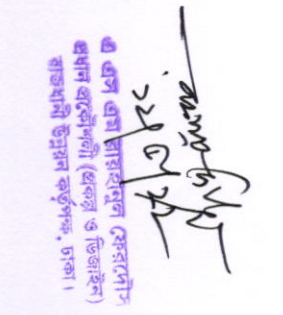 এ এস এম রায়হানুল ফেরদৌস
প্রধান প্রকৌশলী (প্রকল্প ও ডিজাইন)
রাজধানী উন্নয়ন কর্তৃপক্ষ, ঢাকা।